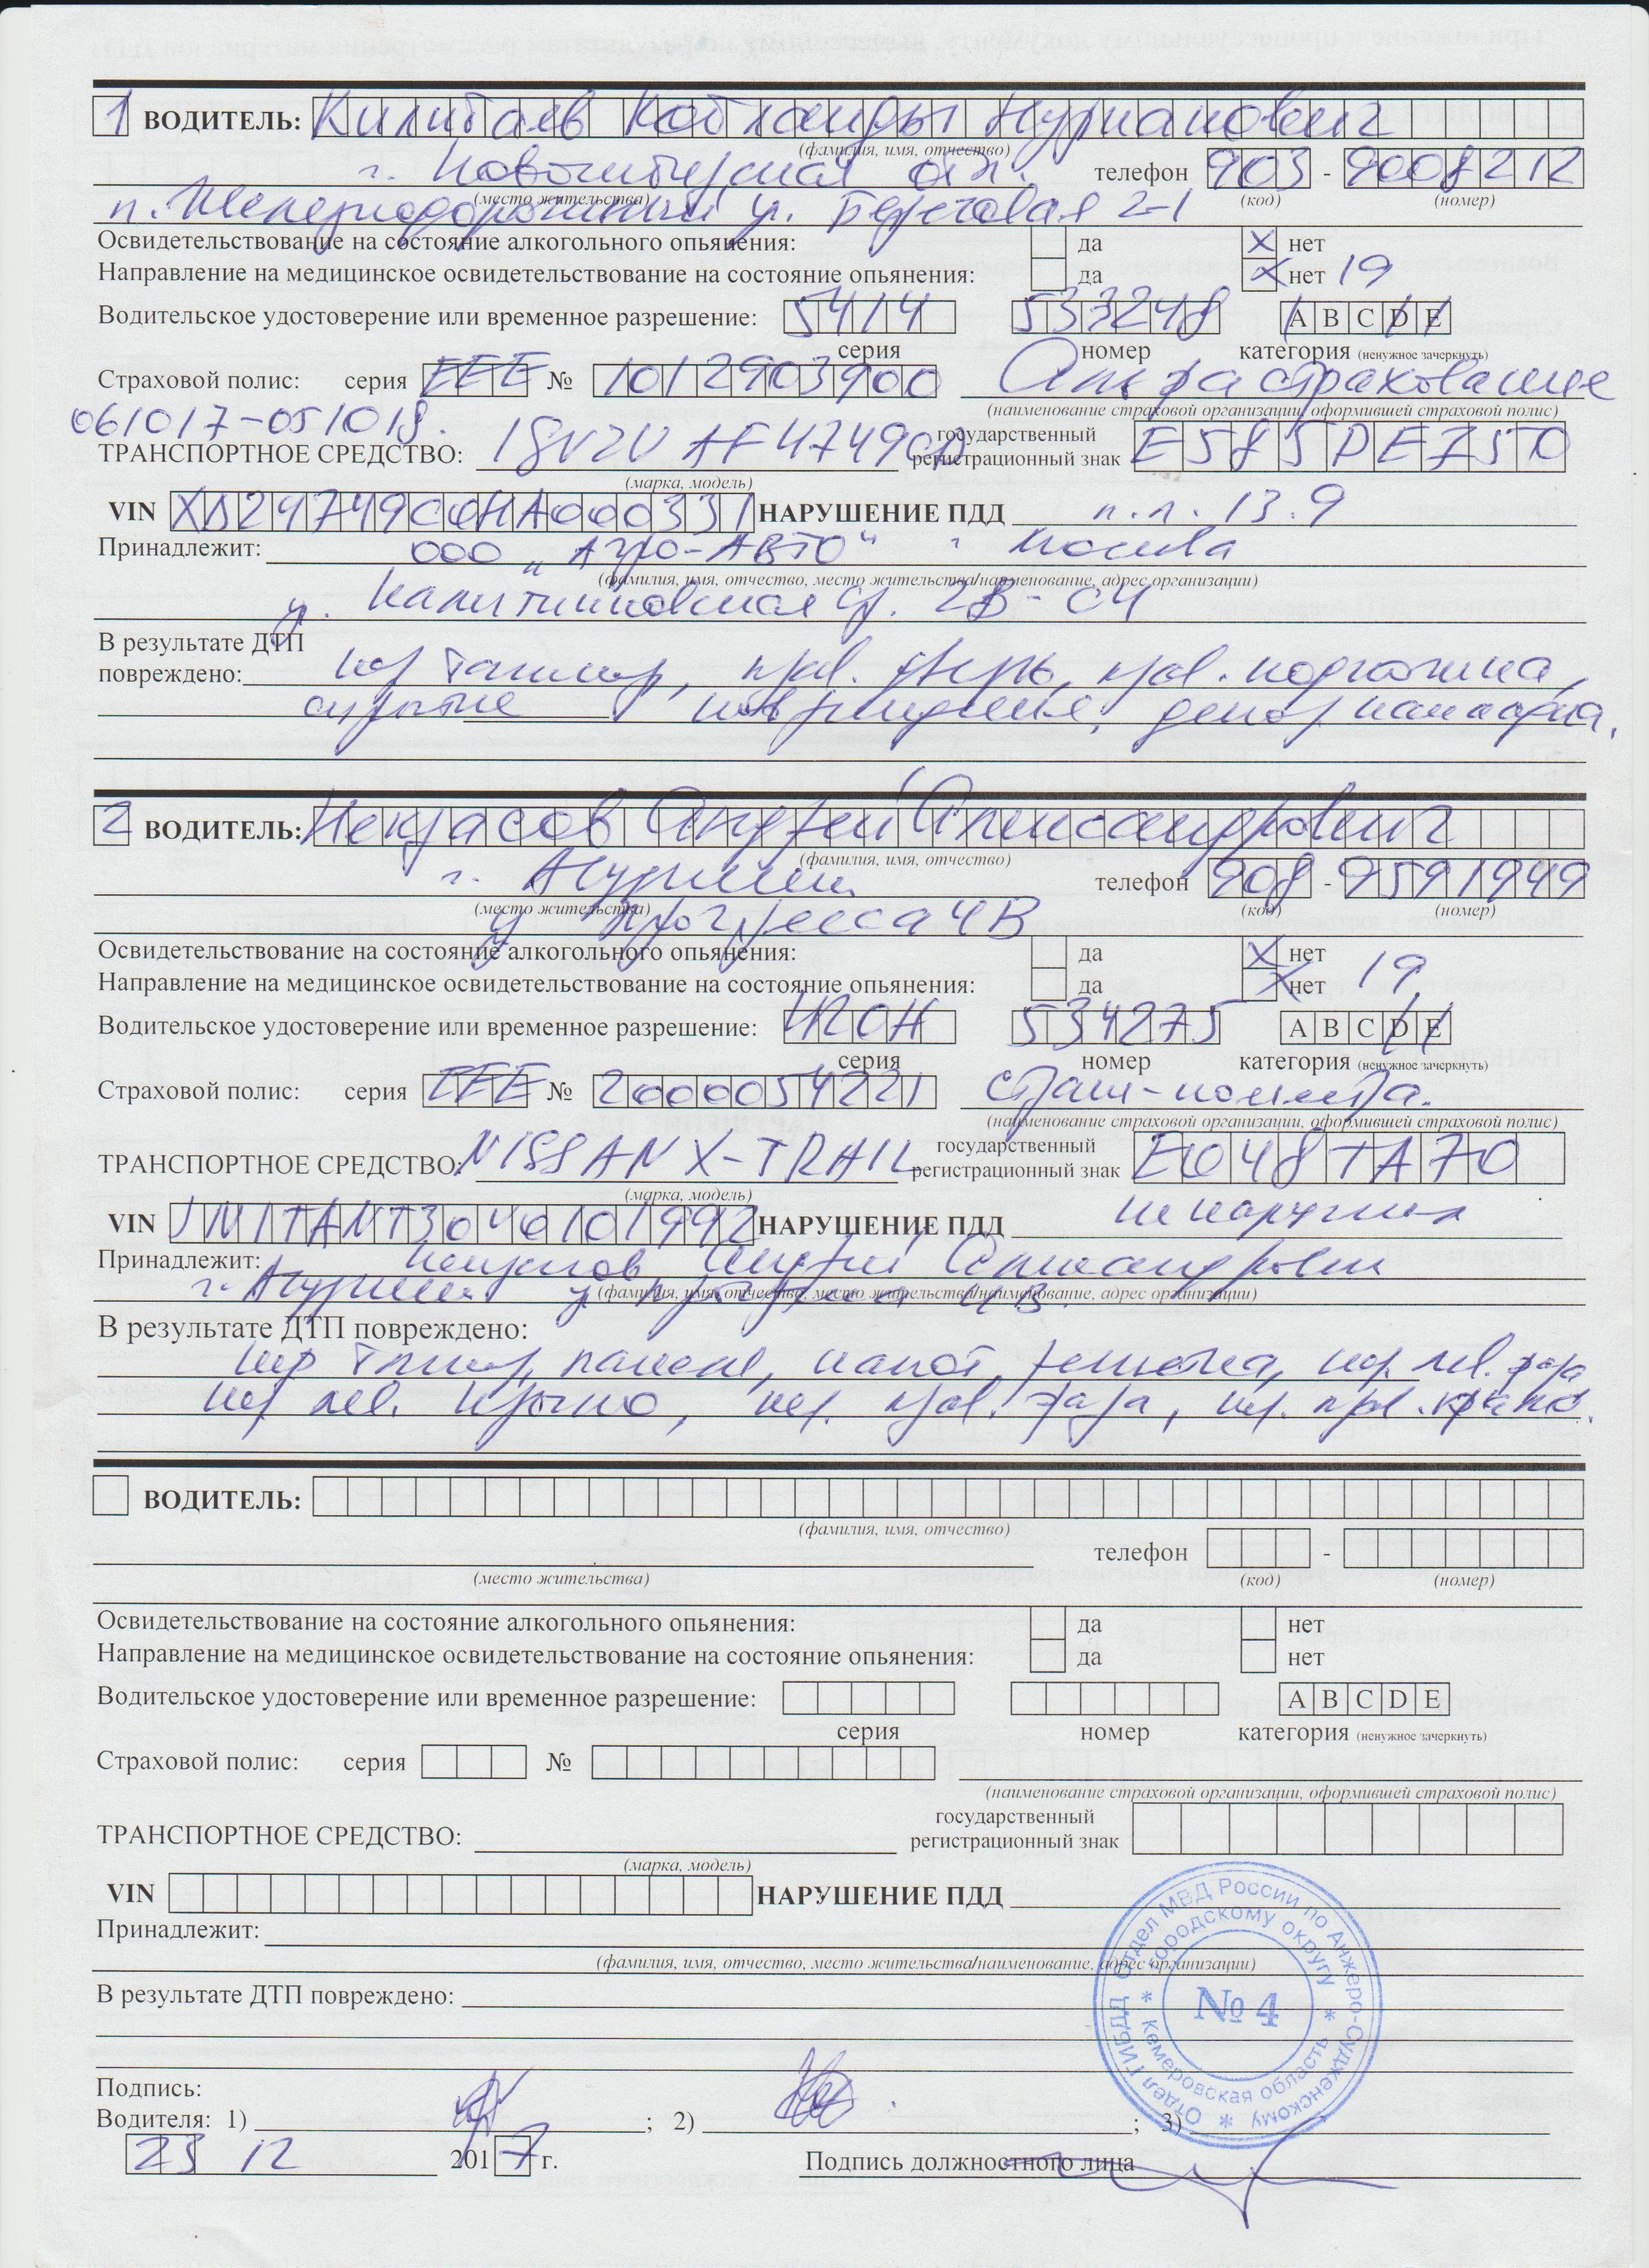 1 ВОДИТЕЛЬ: Килибаев Нурланович
(фамилия, имя, отчество)
г. Новосибирская обл. телефон 903 - 9008212
(место жительства) (код) (номер)
п. Железнодорожный ул. Береговая 2-1
Освидетельствование на состояние алкогольного опьянения: да X нет
Направление на медицинское освидетельствование на состояние опьянения: да X нет 19
Водительское удостоверение или временное разрешение: 5414 533248 A B C D E
серия номер категория (ненужное зачеркнуть)
Страховой полис: серия ЕЕЕ № 1012903900 Альфа страхование
(наименование страховой организации, оформившей страховой полис)
061017-051018.
ТРАНСПОРТНОЕ СРЕДСТВО: государственный регистрационный знак Е585РЕ750
(марка, модель)
VIN НАРУШЕНИЕ ПДД п.п. 13.9
Принадлежит: ООО "Агро-АВТО" г Москва
(фамилия, имя, отчество, место жительства/наименование, адрес организации)
ул.
В результате ДТП
повреждено: пер бампер, прав. дверь, прав. подножка,
скрытые повреждения,
2 ВОДИТЕЛЬ: Некрасов Андрей Александрович
(фамилия, имя, отчество)
г. телефон 908 - 9591949
(место жительства) (код) (номер)
у прогресса 4В
Освидетельствование на состояние алкогольного опьянения: да X нет
Направление на медицинское освидетельствование на состояние опьянения: да X нет 19
Водительское удостоверение или временное разрешение: 534275 A B C D E
серия номер категория (ненужное зачеркнуть)
Страховой полис: серия ЕЕЕ № 2000054221
(наименование страховой организации, оформившей страховой полис)
ТРАНСПОРТНОЕ СРЕДСТВО: NISSAN X-TRAIL государственный регистрационный знак Е048ТА70
(марка, модель)
VIN JN1TANT30U0101992 НАРУШЕНИЕ ПДД не нарушил
Принадлежит: Некрасов Андрей Александрович
г. у прогресса 4В.
(фамилия, имя, отчество, место жительства/наименование, адрес организации)
В результате ДТП повреждено:
пер бампер, капот, решетка, пер. лев. фара
пер лев. крыло, пер. прав. фара, пер. прав. крыло.
ВОДИТЕЛЬ:
(фамилия, имя, отчество)
телефон -
(место жительства) (код) (номер)
Освидетельствование на состояние алкогольного опьянения: да нет
Направление на медицинское освидетельствование на состояние опьянения: да нет
Водительское удостоверение или временное разрешение: A B C D E
серия номер категория (ненужное зачеркнуть)
Страховой полис: серия №
(наименование страховой организации, оформившей страховой полис)
ТРАНСПОРТНОЕ СРЕДСТВО: государственный регистрационный знак
(марка, модель)
VIN НАРУШЕНИЕ ПДД
Принадлежит:
(фамилия, имя, отчество, место жительства/наименование, адрес организации)
В результате ДТП повреждено:
Отдел ГИБДД Отдел МВД России по Анжеро-Судженскому
городскому округу * Кемеровская область *
№ 4
Подпись:
Водителя: 1) ; 2) ; 3)
23 12 2017 г. Подпись должностного лица